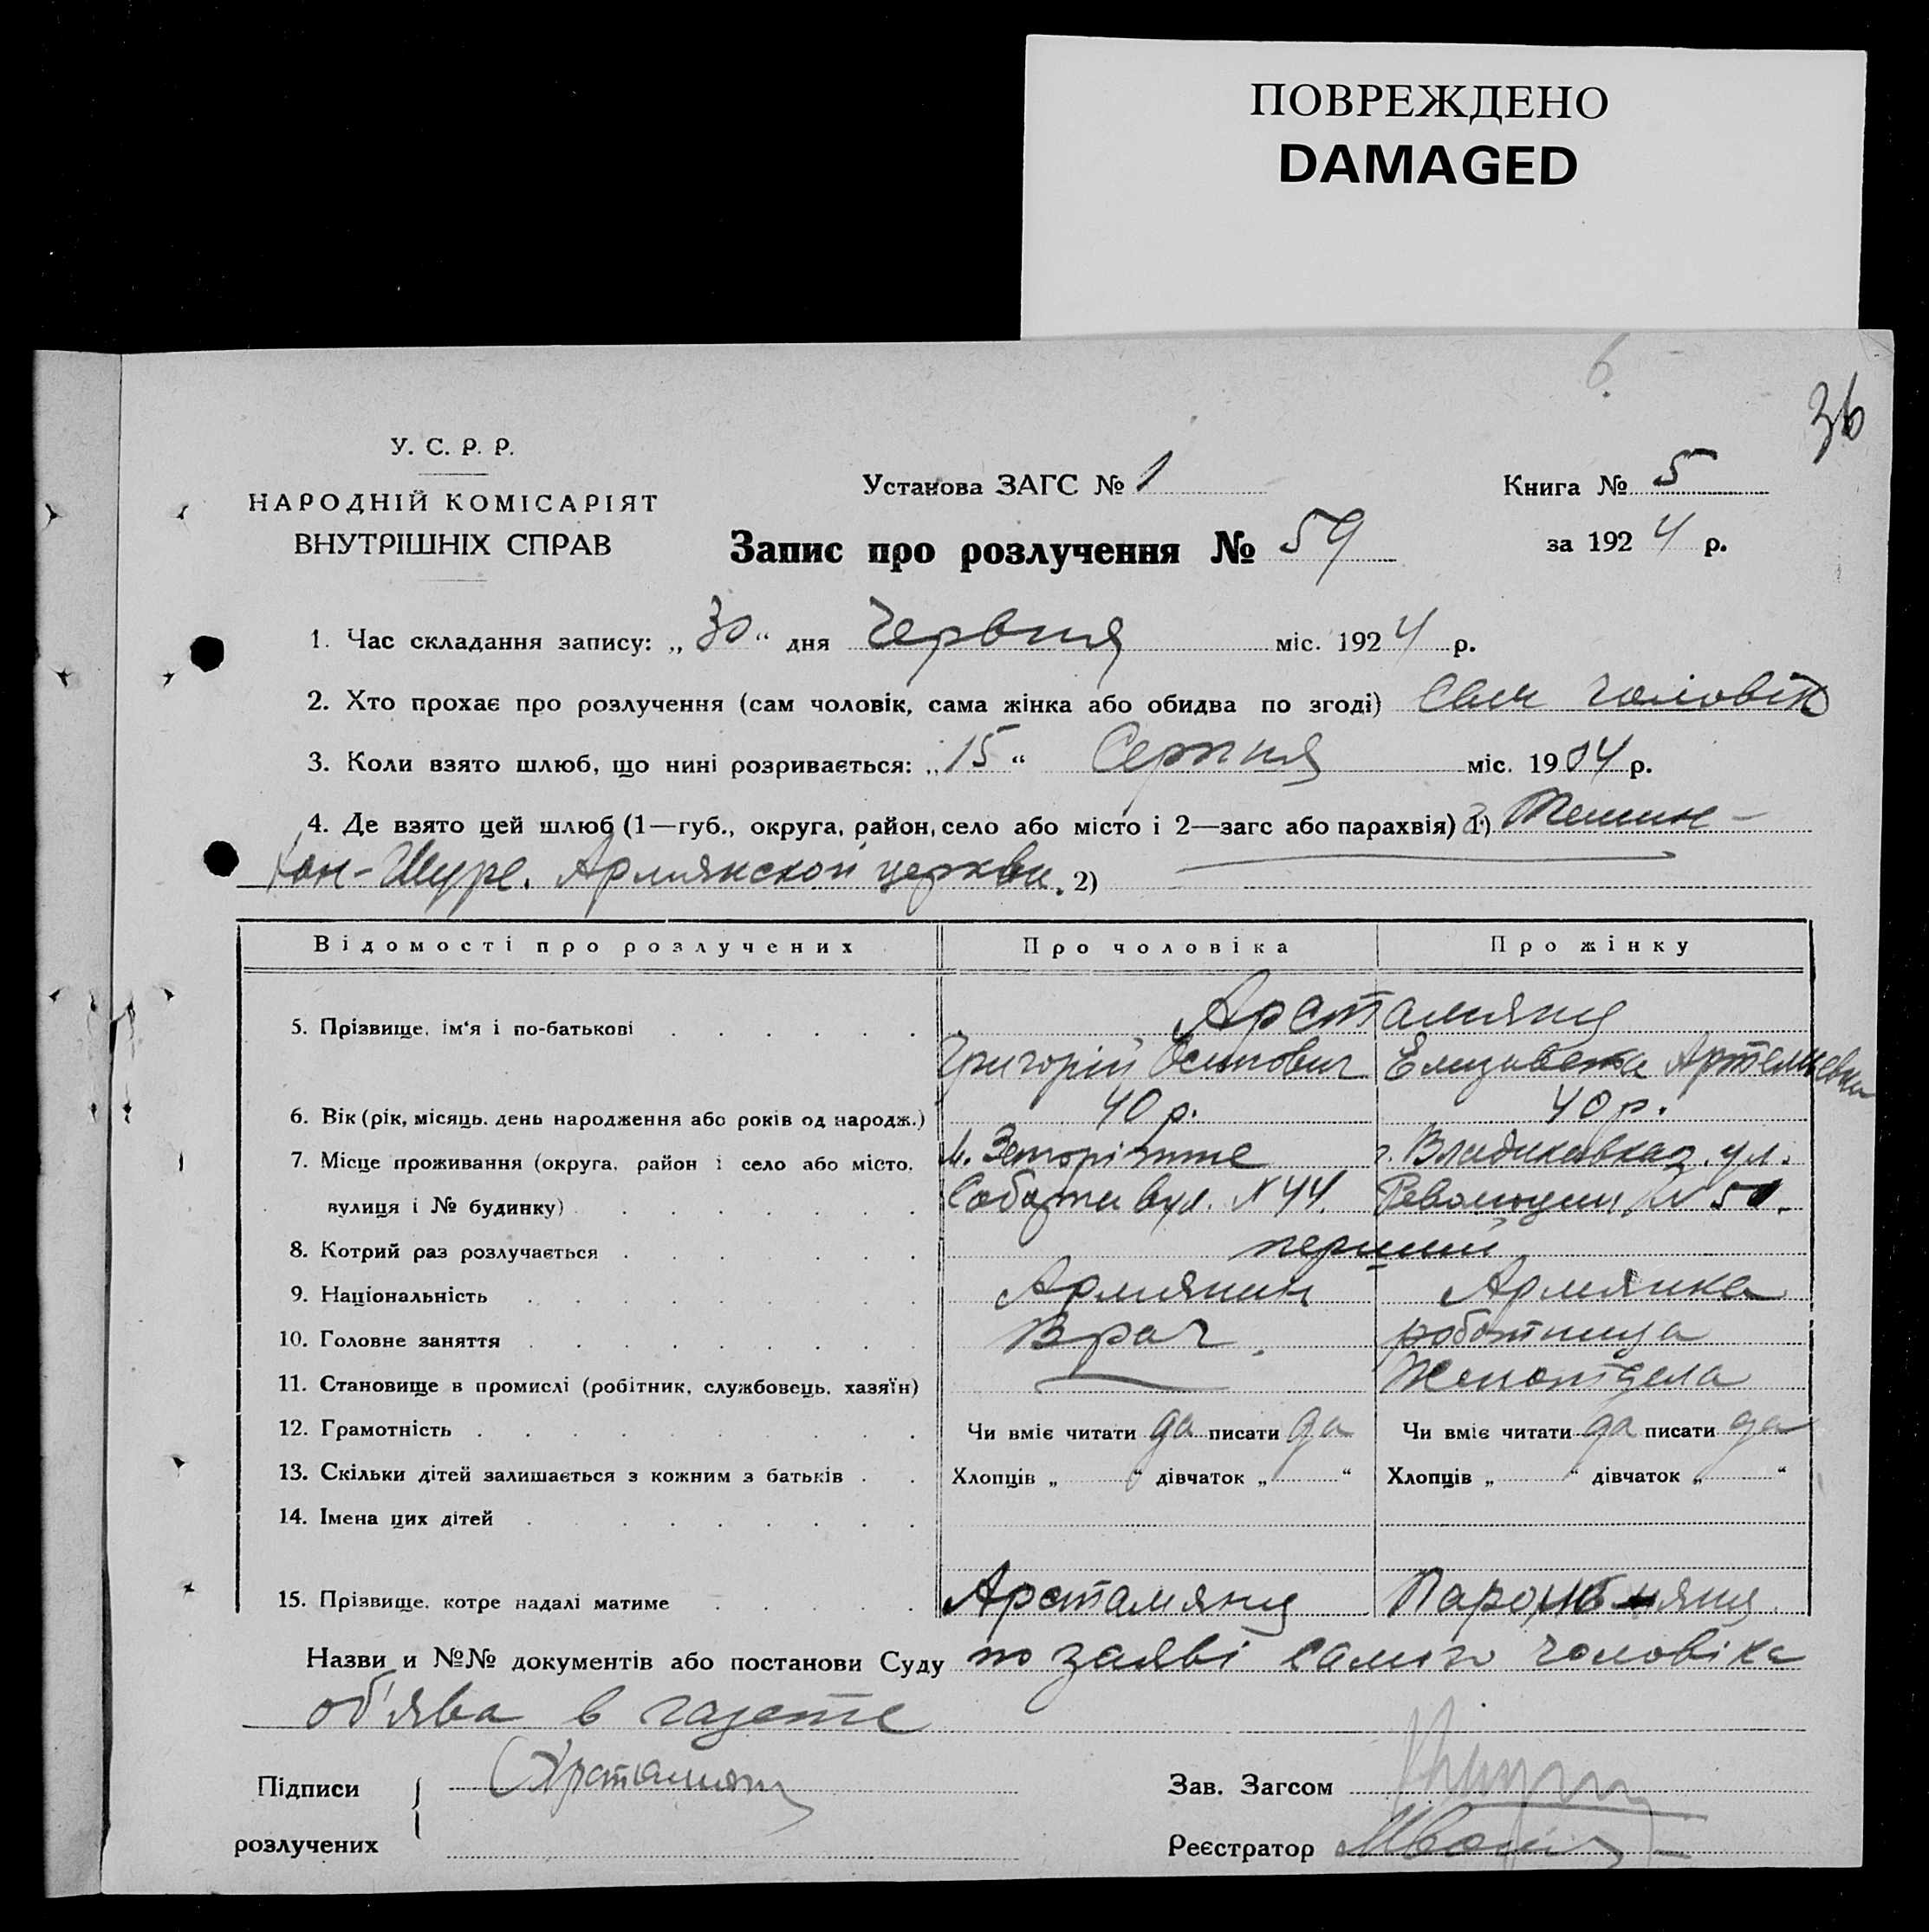 ПОВРЕЖДЕНО
DAMAGED
6.
36
У. С. Р. Р.
НАРОДНІЙ КОМІСАРІЯТ
ВНУТРІШНІХ СПРАВ
Установа ЗАГС № 1
Книга № 5
Запис про розлучення № 59
за 1924 р.
1. Час складання запису: „30“ дня Червня міс. 1924 р.
2. Хто прохає про розлучення (сам чоловік, сама жінка або обидва по згоді) Сам чоловік
3. Коли взято шлюб, що нині розривається: „15“ Серпня міс. 1904 р.
4. Де взято цей шлюб (1—губ., округа, район, село або місто і 2—загс або парахвія) 1)
Хан-Шуре. Армянской церкви. 2)
Відомості про розлучених Про чоловіка Про жінку
5. Прізвище, ім‘я і по-батькові Арстамянц
Григорій Осипович Елизавета Артемьевна
6. Вік (рік, місяць, день народження або років од народж.) 40 р. 40 р.
7. Місце проживання (округа, район і село або місто, м. г. Владикавказ. ул.
вулиця і № будинку) вул. N 44. Революции N 51.
8. Котрий раз розлучається перший
9. Національність Армянин Армянка
10. Головне заняття Врач. работница
11. Становище в промислі (робітник, службовець, хазяїн) Женотдела
12. Грамотність Чи вміє читати да писати да Чи вміє читати да писати да
13. Скільки дітей залишається з кожним з батьків Хлопців „ “ дівчаток „ “ Хлопців „ “ дівчаток „ “
14. Імена цих дітей
15. Прізвище, котре надалі матиме Арстамянц
Назви и №№ документів або постанови Суду по заяві самого чоловіка
об'ява в газете
Підписи Арстамянц Зав. Загсом
розлучених Реєстратор